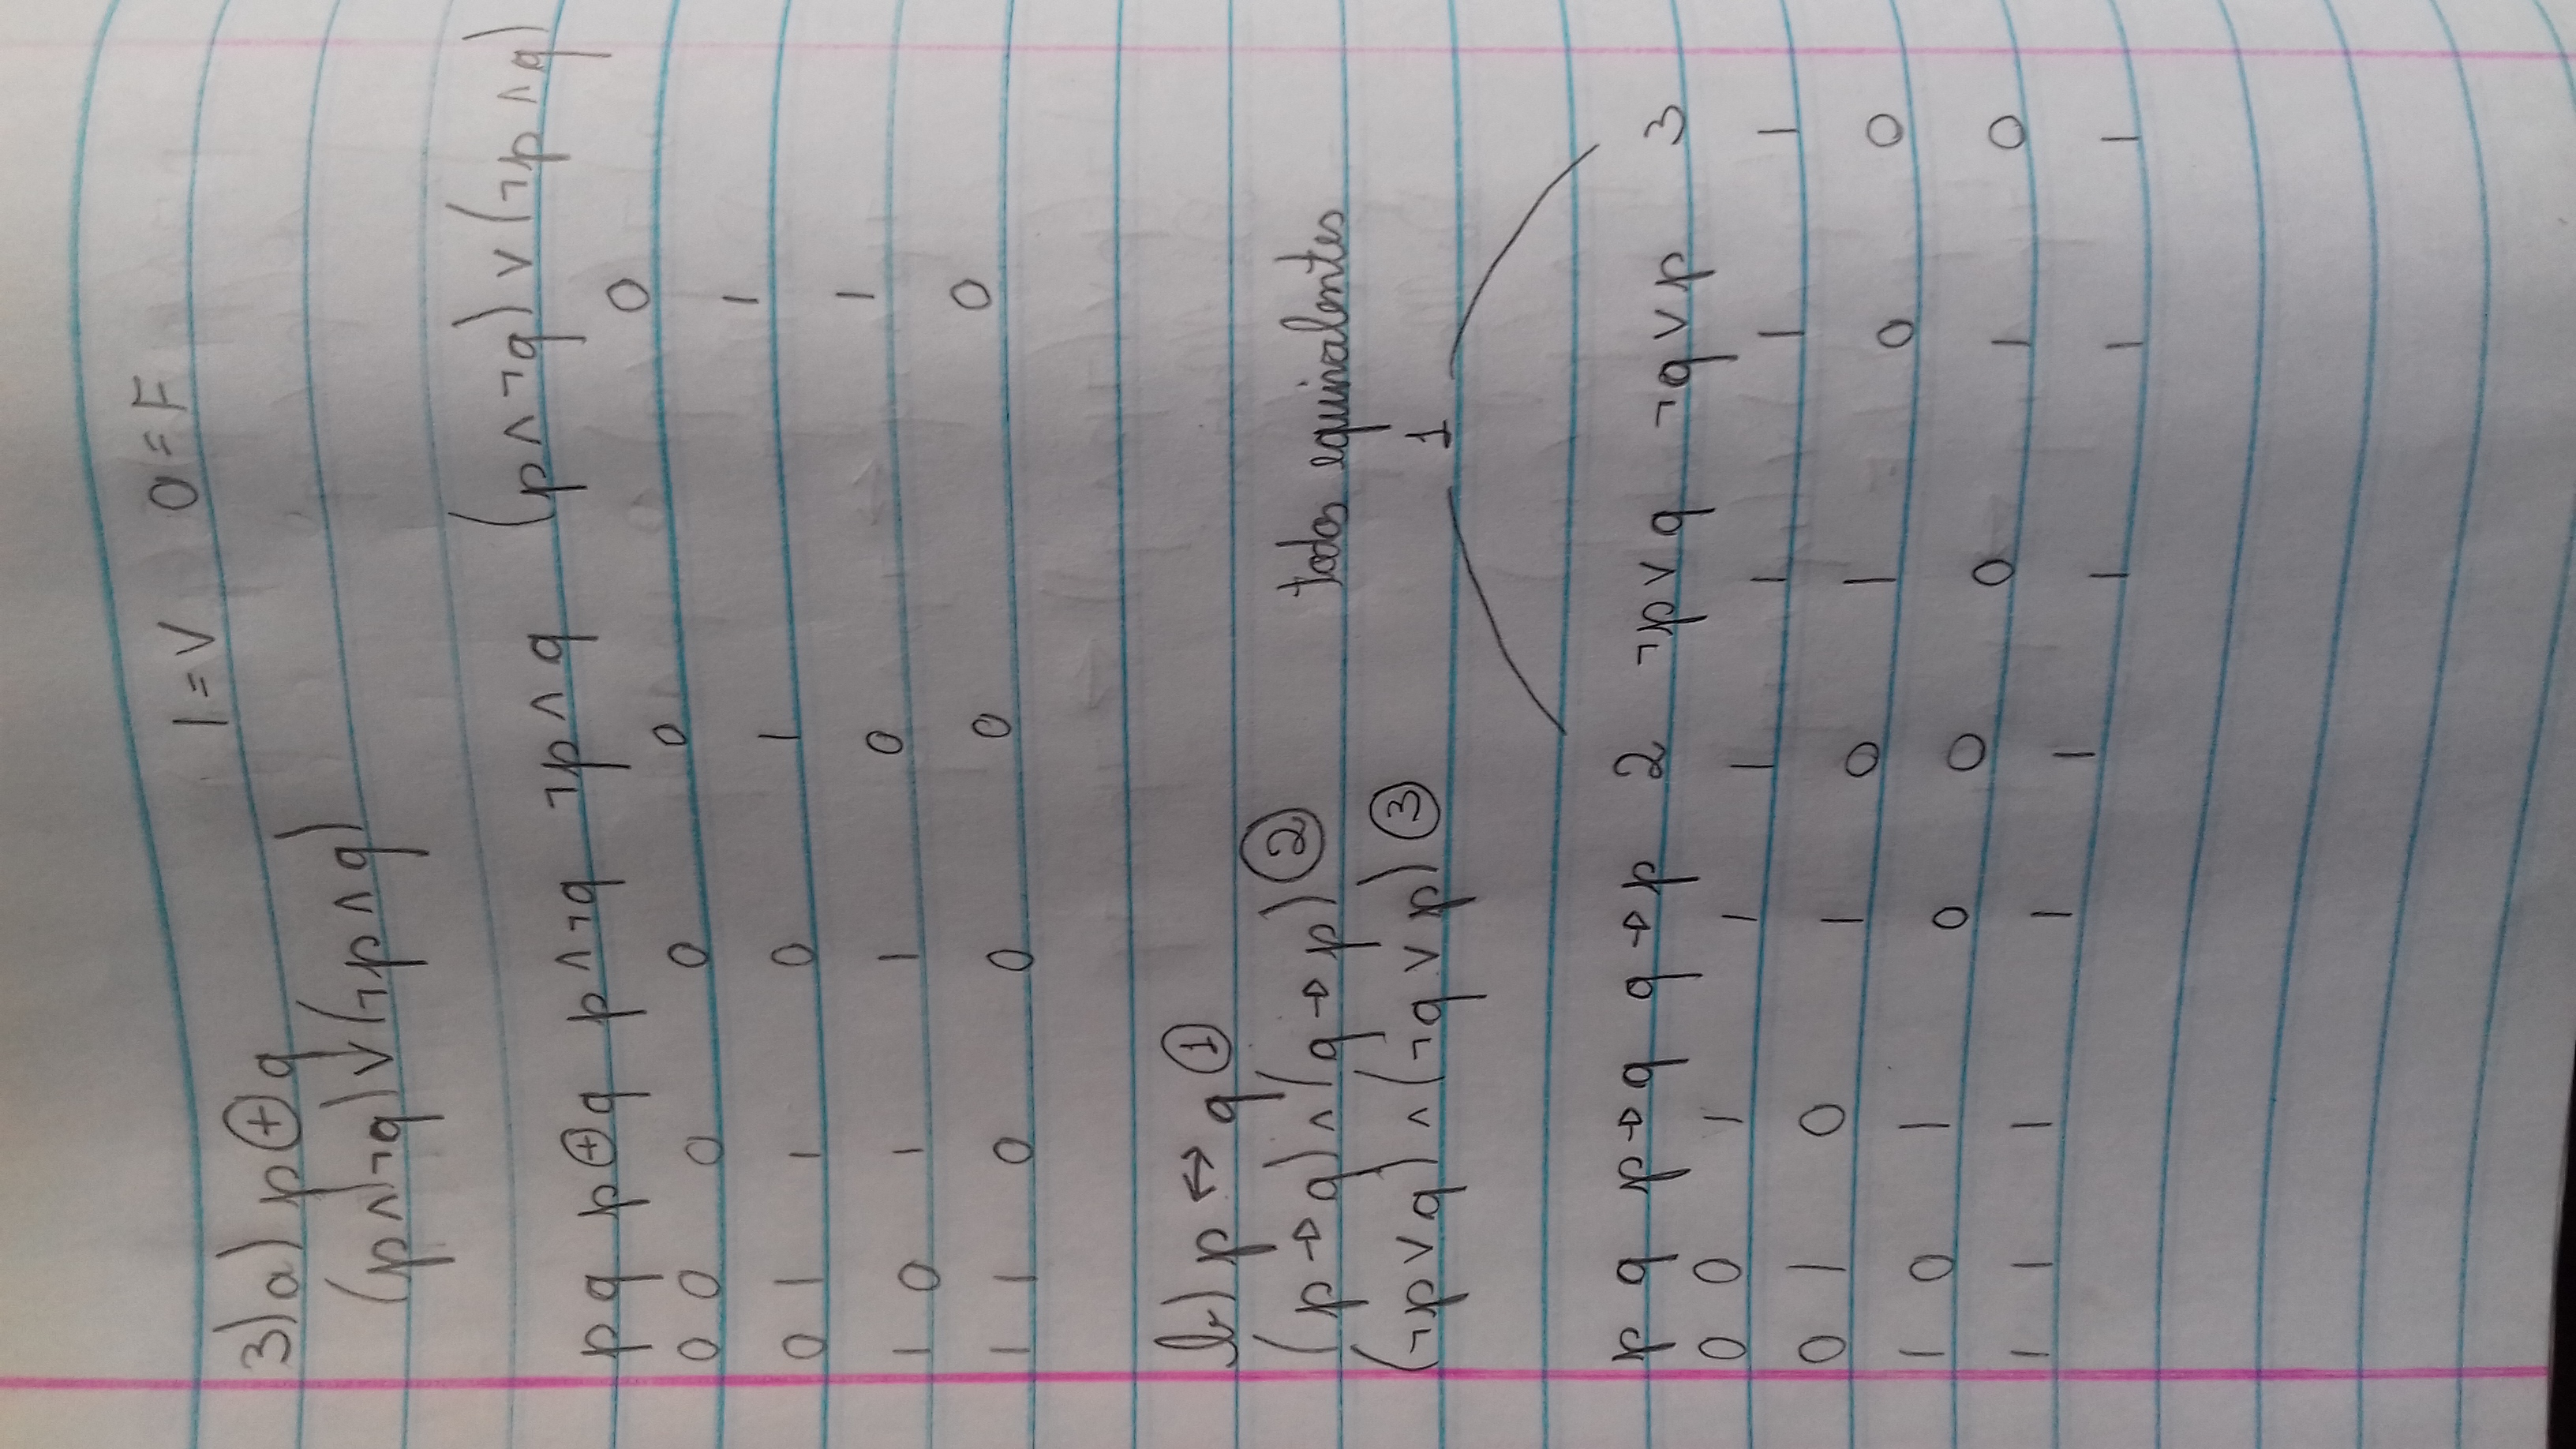 1=V 0=F
3)a) p⊕q
(p∧¬q)∨(¬p∧q)
p q p⊕q p∧¬q ¬p∧q (p∧¬q)∨(¬p∧q)
0 0 0 0 0 0
0 1 1 0 1 1
1 0 1 1 0 1
1 1 0 0 0 0
b) p↔q ①
(p→q)∧(q→p) ②
todos equivalentes
(¬p∨q)∧(¬q∨p) ③
1
p q p→q q→p 2 ¬p∨q ¬q∨p 3
0 0 1 1 1 1 1 1
0 1 0 1 0 1 0 0
1 0 1 0 0 0 1 0
1 1 1 1 1 1 1 1